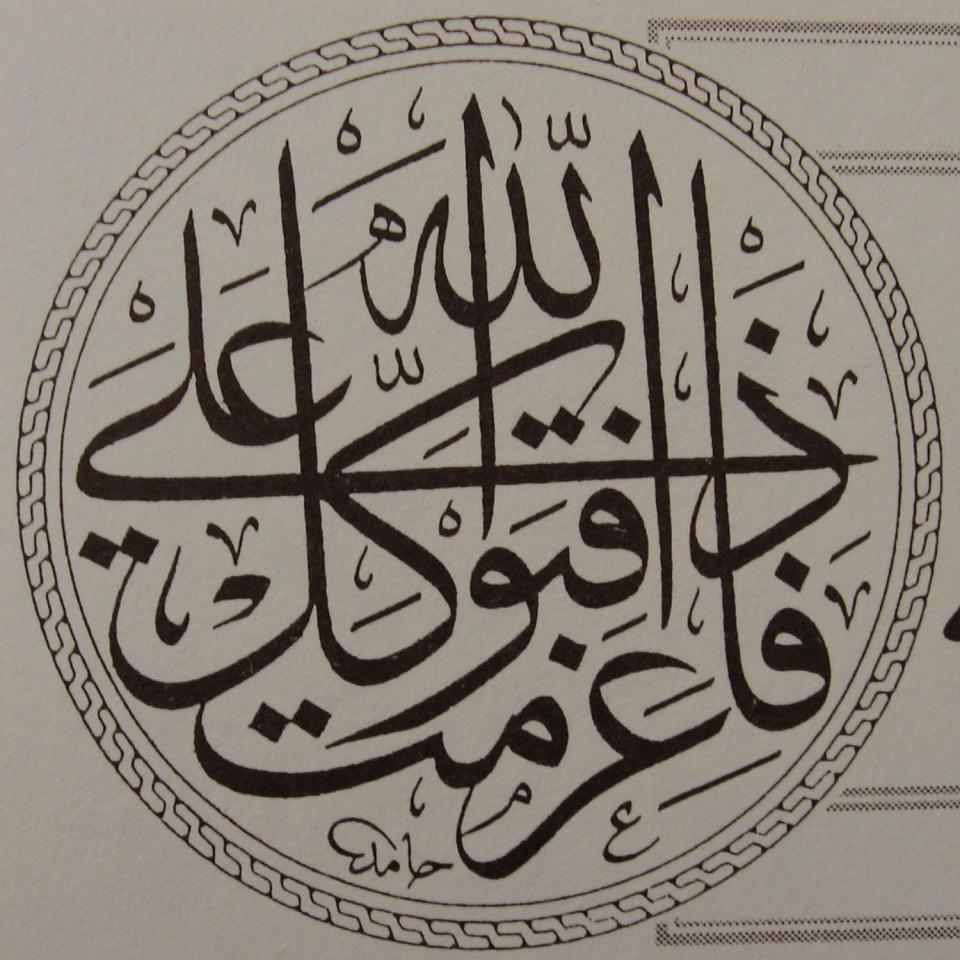 فَإِذَا عَزَمْتَ فَتَوَكَّلْ عَلَى اللّٰهِ
حامد